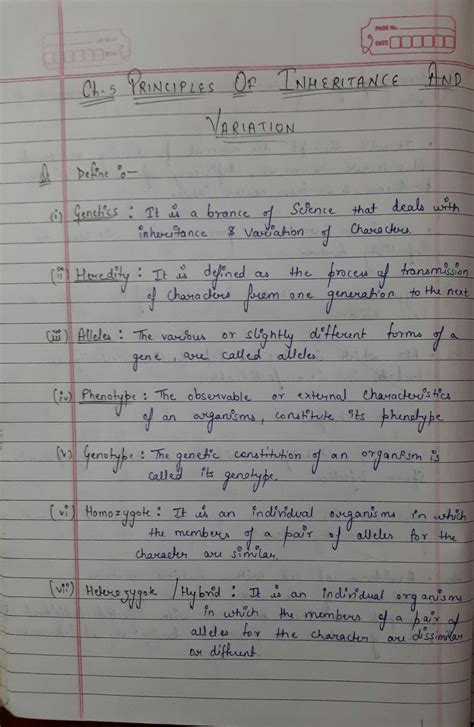 PAGE No.
DATE
Ch-5 PRINCIPLES OF INHERITANCE AND
VARIATION
Q Define :-
(i) Genetics : It is a brance of Science that deals with
inheritance & variation of Characters.
(ii) Heredity : It is defined as the process of transmission
of characters from one generation to the next
(iii) Alleles : The various or slightly different forms of a
gene, are called alleles.
(iv) Phenotype : The observable or external characteristics
of an organisms, constitute its phenotype
(v) Genotype : The genetic constitution of an organism is
called its genotype.
(vi) Homozygote : It is an individual organisms in which
the members of a pair of alleles for the
character are similar.
(vii) Heterozygote / Hybrid : It is an individual organisms
in which the members of a pair of
alleles for the character are dissimilar
or different.